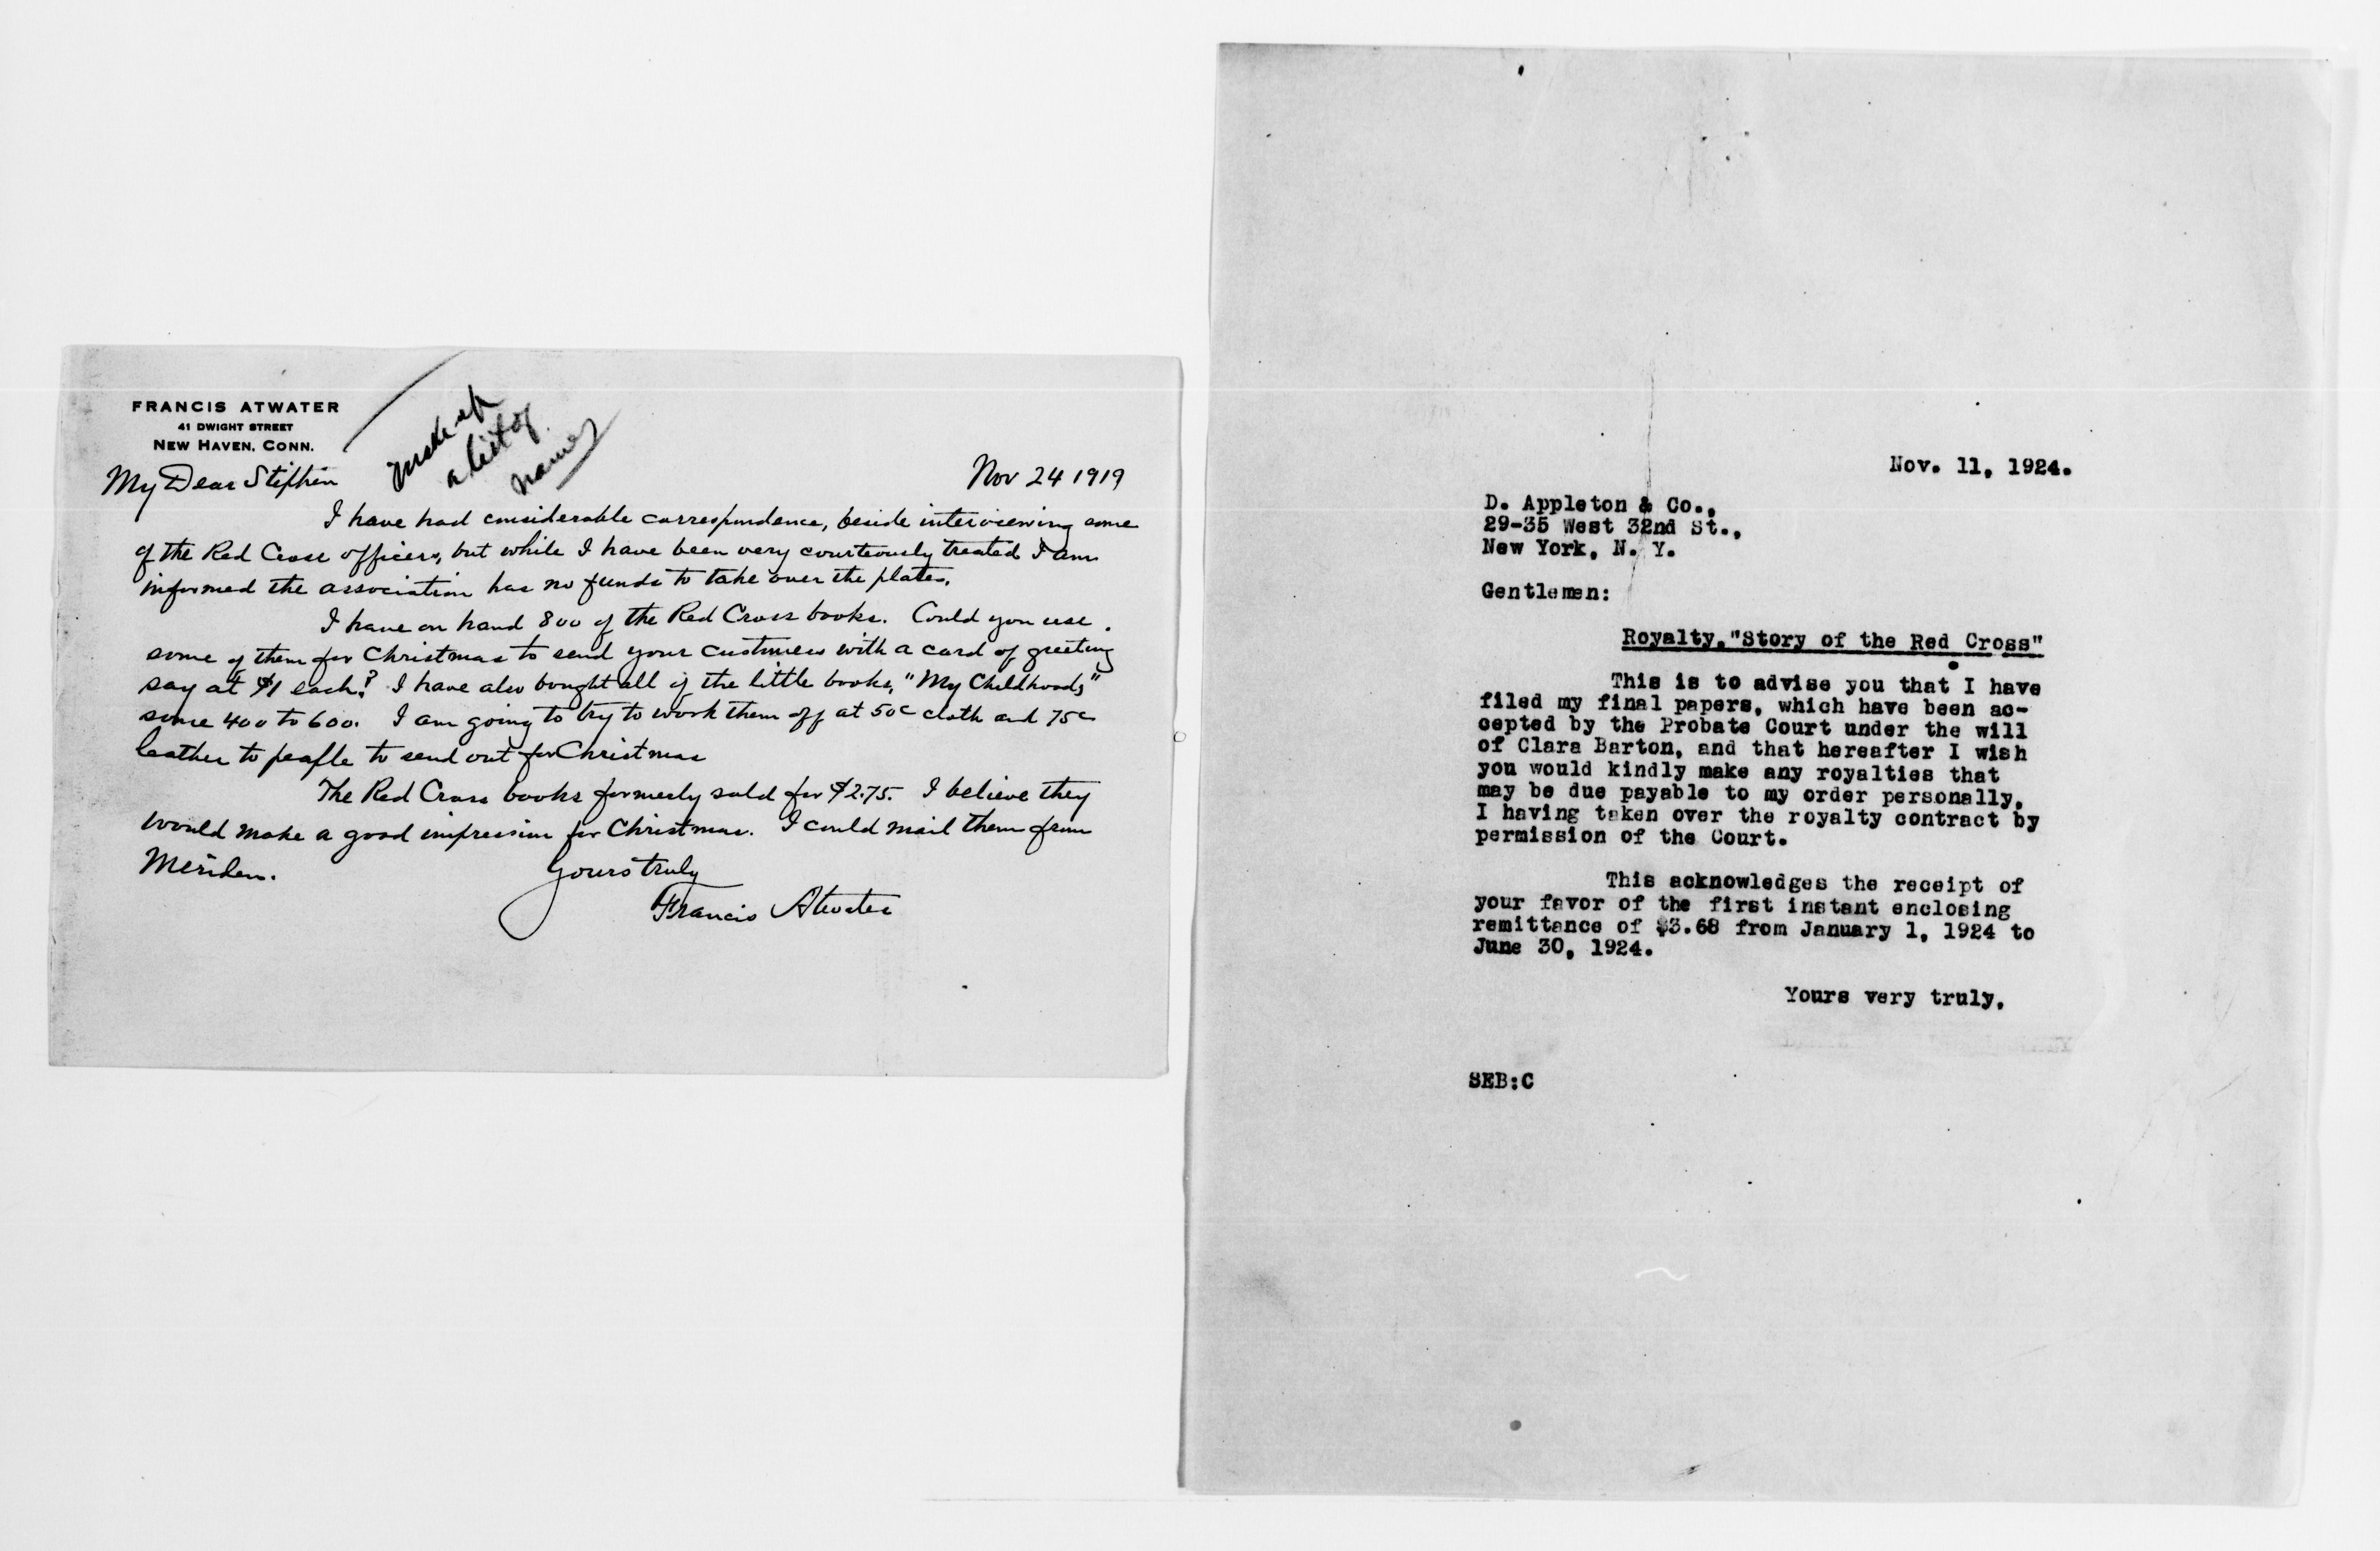 FRANCIS ATWATER
41 DWIGHT STREET
NEW HAVEN, CONN.
make up
a list of
names
Nov 24 1919
My Dear Stephen
I have had considerable correspondence, beside interviewing some
of the Red Cross officers, but while I have been very courteously treated I am
informed the association has no funds to take over the plates.
I have on hand 800 of the Red Cross books. Could you use
some of them for Christmas to send your customers with a card of greeting
say at $1 each? I have also bought all of the little books, "My Childhood,"
some 400 to 600. I am going to try to work them off at 50c cloth and 75c
leather to people to send out for Christmas
The Red Cross books formerly sold for $2.75. I believe they
would make a good impression for Christmas. I could mail them from
Meriden.
Yours truly
Francis Atwater
Nov. 11, 1924.
D. Appleton & Co.,
29-35 West 32nd St.,
New York, N. Y.
Gentlemen:
Royalty, "Story of the Red Cross"
This is to advise you that I have
filed my final papers, which have been ac-
cepted by the Probate Court under the will
of Clara Barton, and that hereafter I wish
you would kindly make any royalties that
may be due payable to my order personally,
I having taken over the royalty contract by
permission of the Court.
This acknowledges the receipt of
your favor of the first instant enclosing
remittance of $3.68 from January 1, 1924 to
June 30, 1924.
Yours very truly,
SEB:C